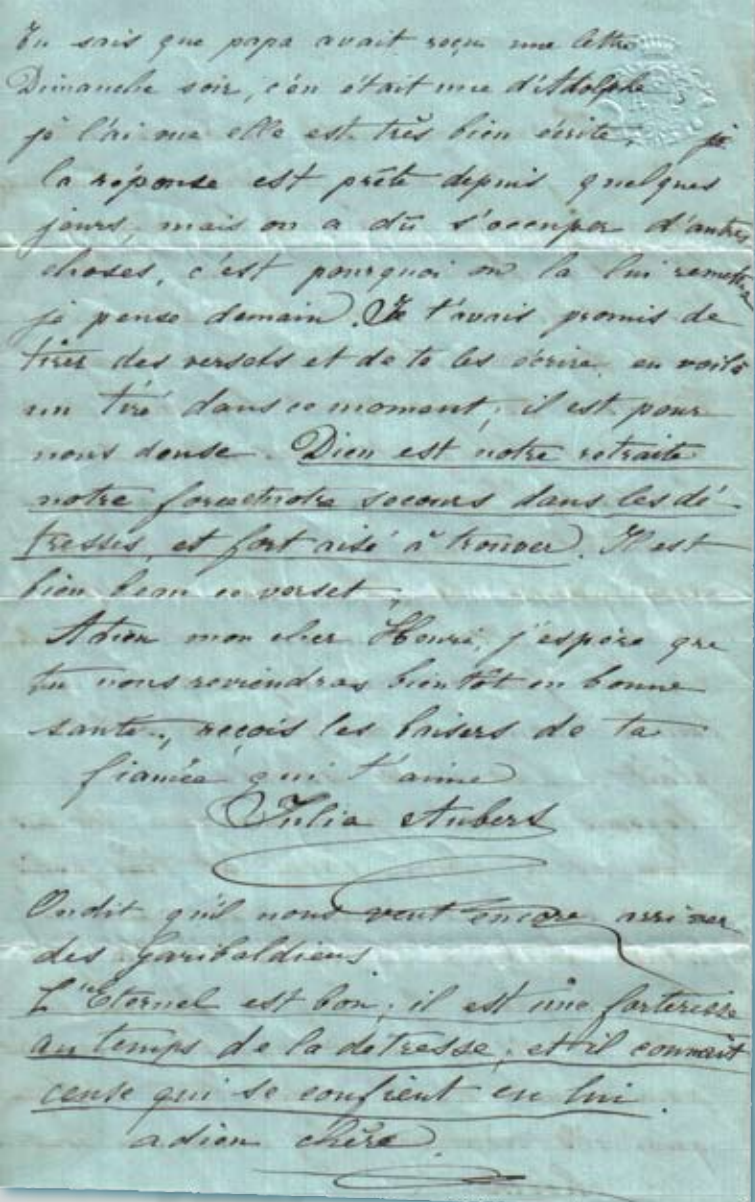 Tu sais que papa avait reçu une lettre
Dimanche soir, c'en était une d'Adolphe
je l'ai vue elle est très bien écrite, je
la réponse est prête depuis quelques
jours, mais on a dû s'occuper d'autres
choses, c'est pourquoi on la lui remettra
je pense demain. Je t'avais promis de
tirer des versets et de te les écrire, en voilà
un tiré dans ce moment, il est pour
nous deuse. Dieu est notre retraite
notre force et notre secours dans les dé-
tresses, et fort aisé à trouver. Il est
bien beau ce verset.
Adieu mon cher Henri, j'espère que
tu nous reviendras bientôt en bonne
santé, reçois les baisers de ta
fiancée qui t'aime
Julia Aubers
On dit qu'il nous veut encore arriver
des garibaldiens
L'Eternel est bon, il est une forteresse
au temps de la détresse, et il connait
ceuse qui se confient en lui.
adieu chère